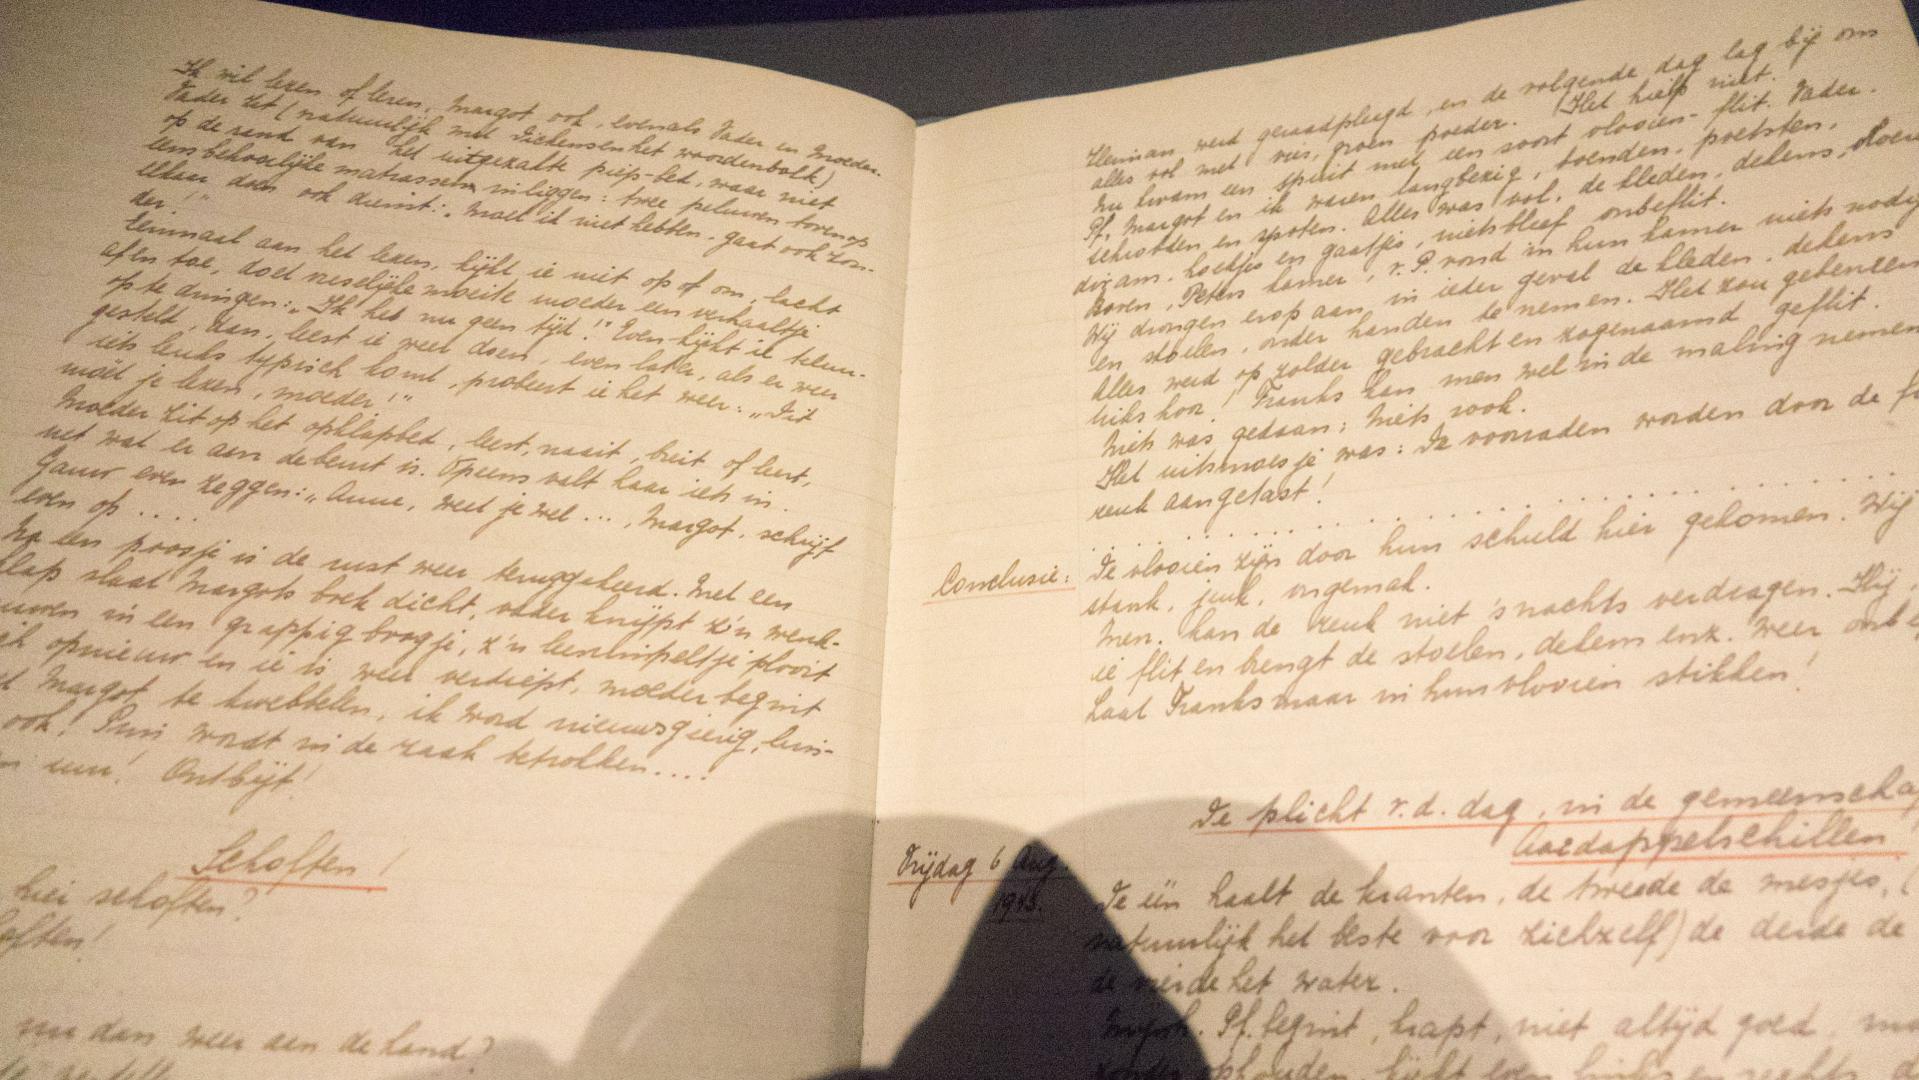 Ik wil lezen of leren, Margot ook, evenals Vader en Moeder.
Vader zit (natuurlijk met Dickens en het woordenboek)
op de rand van het uitgezakte piep-bed, waar niet
eens behoorlijke matrassen in liggen: twee peluwen boven op
elkaar doen ook dienst: „Moet ik niet hebben, gaat ook zon-
der!"
Eenmaal aan het lezen, kijkt ie niet op of om, lacht
af en toe, doet vreselijke moeite moeder een verhaaltje
op te dringen: „Ik heb nu geen tijd!" Even kijkt ie teleur-
gesteld, dan leest ie weer door, even later, als er weer
iets leuks typisch komt, probeert ie het weer: „Dit
moet je lezen, moeder!"
Moeder zit op het opklapbed, leest, naait, breit of leert,
net wat er aan de beurt is. Opeens valt haar iets in.
Gauw even zeggen: „Anne, weet je wel ..., Margot, schrijf
even op ....
Na een poosje is de rust weer teruggekeerd. Met een
klap slaat Margot haar boek dicht, vader knijpt z'n wenk-
auwen in een grappig boogje, z'n leesrimpeltje plooit
zich opnieuw en ie is weer verdiept, moeder begint
met Margot te kwebbelen, ik word nieuwsgierig, luis-
ook! Pim wordt in de zaak betrokken....
uur! Ontbijt!
Schoften!
hier schoften?
schoften!
nu dan weer aan de hand?
Kleiman werd geraadpleegd, en de volgende dag lag bij ons
alles vol met vies, groen poeder. (Het hielp niet.
Nu kwam een spuit met een soort vlooien-flit. Vader.
Pf. Margot en ik waren lang bezig, boenden, poetsten,
schrobden en spoten. Alles was vol, de kleden, dekens, vloer
divan, hoekjes en gaatjes, niets bleef onbeflit.
Boven, Peters kamer, v. P. vond in hun kamer niets nodig
Wij drongen erop aan, in ieder geval de kleden, dekens
en stoelen, onder handen te nemen. Het zou gebeuren
Alles werd op zolder gebracht en zogenaamd geflit.
niks hoor! Franks kan men wel in de maling nemen
Niets was gedaan; niets rook.
Het uitsmoesje was: De voorraden worden door de
reuk aangetast!
Conclusie: De vlooien zijn door hun schuld hier gekomen. Wij
stank, jeuk, ongemak.
Men. kan de reuk niet 's nachts verdragen. Hij
ie flit en brengt de stoelen, dekens enz. weer
Laat Franks maar in hun vlooien stikken!
De plicht v.d. dag, in de gemeenschap
Aardappelschillen
Vrijdag 6 Aug. 1943. De één haalt de kranten, de tweede de mesjes, (
natuurlijk het beste voor zichzelf) de derde de
de vierde het water.
Pf. begint, krapt, niet altijd goed,
zonder ophouden, kijkt even links en rechts,